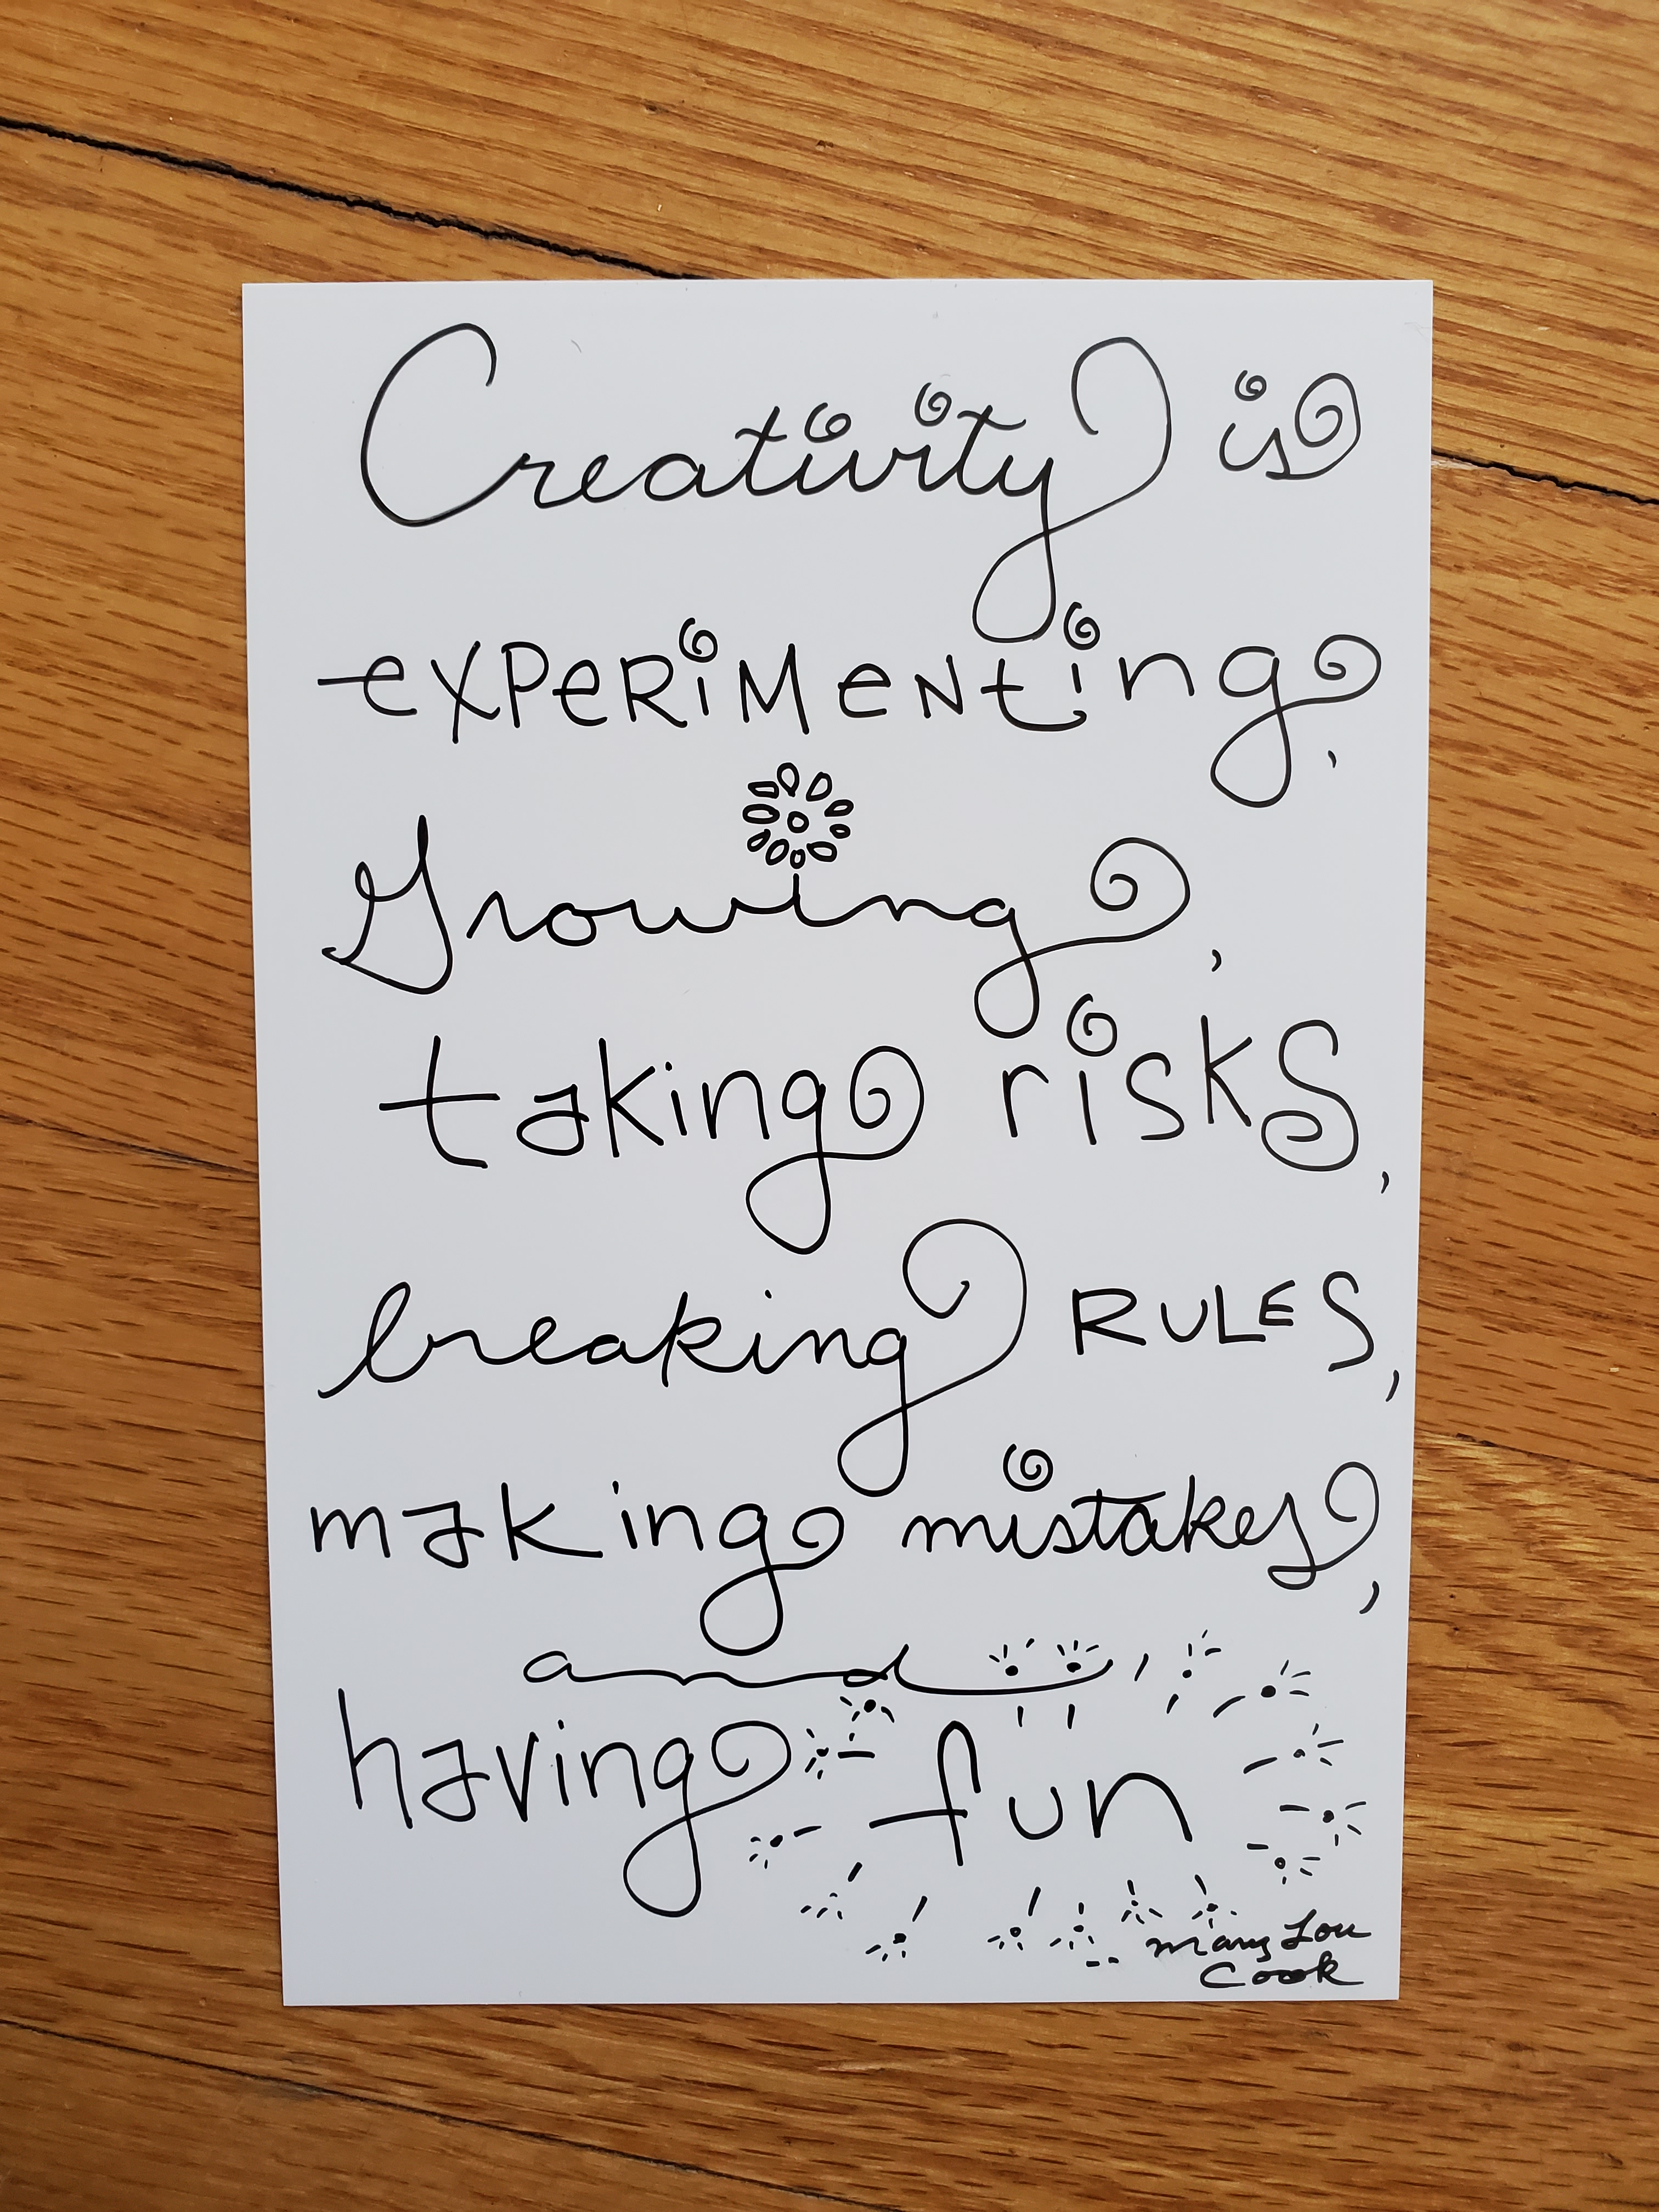 Creativity is
experimenting,
Growing,
taking risks,
breaking RULES,
making mistakes,
and
having fun
Mary Lou
Cook